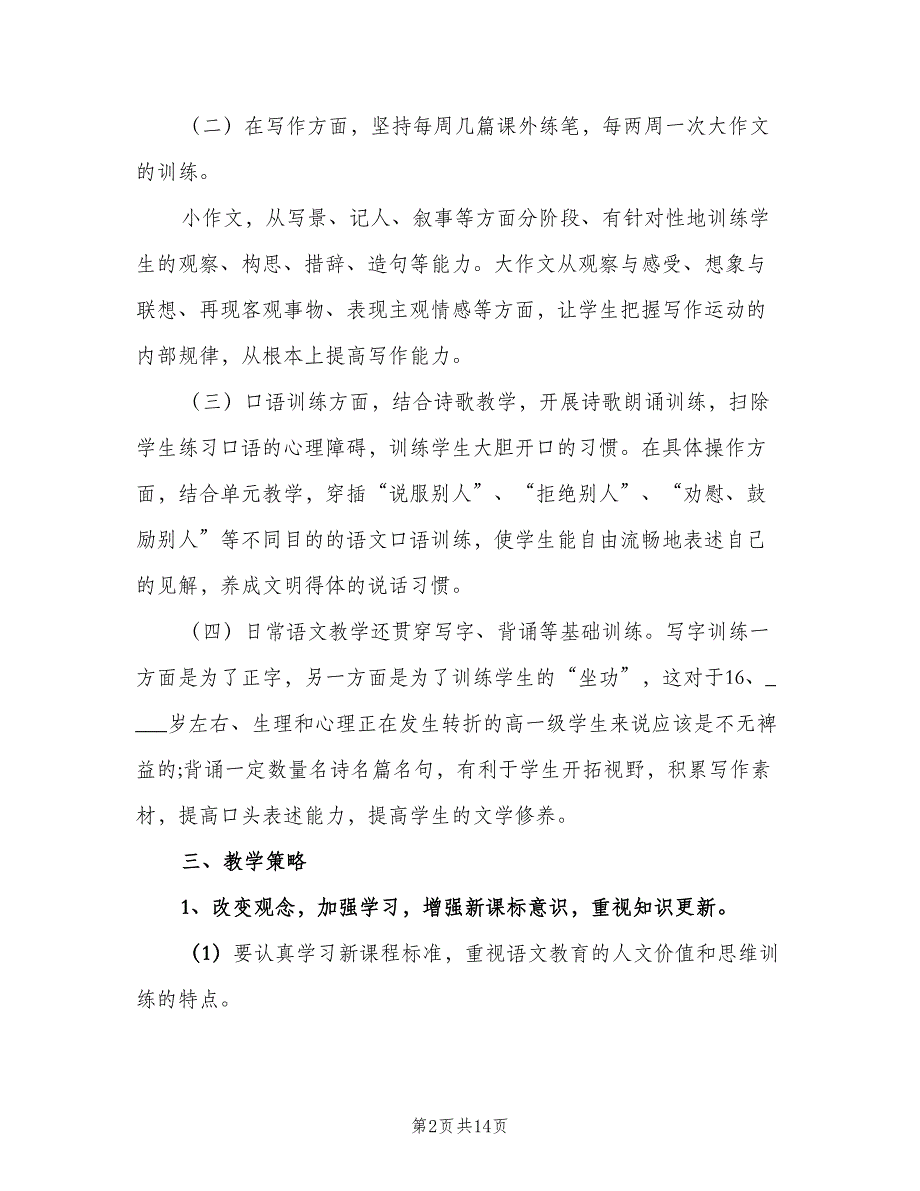 （二）在写作方面，坚持每周几篇课外练笔，每两周一次大作文
的训练。
小作文，从写景、记人、叙事等方面分阶段、有针对性地训练学
生的观察、构思、措辞、造句等能力。大作文从观察与感受、想象与
联想、再现客观事物、表现主观情感等方面，让学生把握写作运动的
内部规律，从根本上提高写作能力。
（三）口语训练方面，结合诗歌教学，开展诗歌朗诵训练，扫除
学生练习口语的心理障碍，训练学生大胆开口的习惯。在具体操作方
面，结合单元教学，穿插“说服别人”、“拒绝别人”、“劝慰、鼓
励别人”等不同目的的语文口语训练，使学生能自由流畅地表述自己
的见解，养成文明得体的说话习惯。
（四）日常语文教学还贯穿写字、背诵等基础训练。写字训练一
方面是为了正字，另一方面是为了训练学生的“坐功”，这对于16、_
___岁左右、生理和心理正在发生转折的高一级学生来说应该是不无裨
益的;背诵一定数量名诗名篇名句，有利于学生开拓视野，积累写作素
材，提高口头表述能力，提高学生的文学修养。
三、教学策略
1、改变观念，加强学习，增强新课标意识，重视知识更新。
（1）要认真学习新课程标准，重视语文教育的人文价值和思维训
练的特点。
第2页共14页